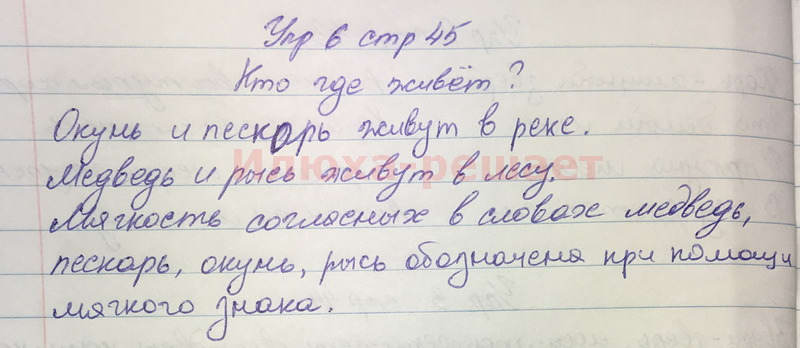 Упр 6 стр 45
Кто где живёт?
Окунь и пескарь живут в реке.
Илюха-решает
Медведь и рысь живут в лесу.
Мягкость согласных в словах медведь,
пескарь, окунь, рысь обозначена при помощи
мягкого знака.